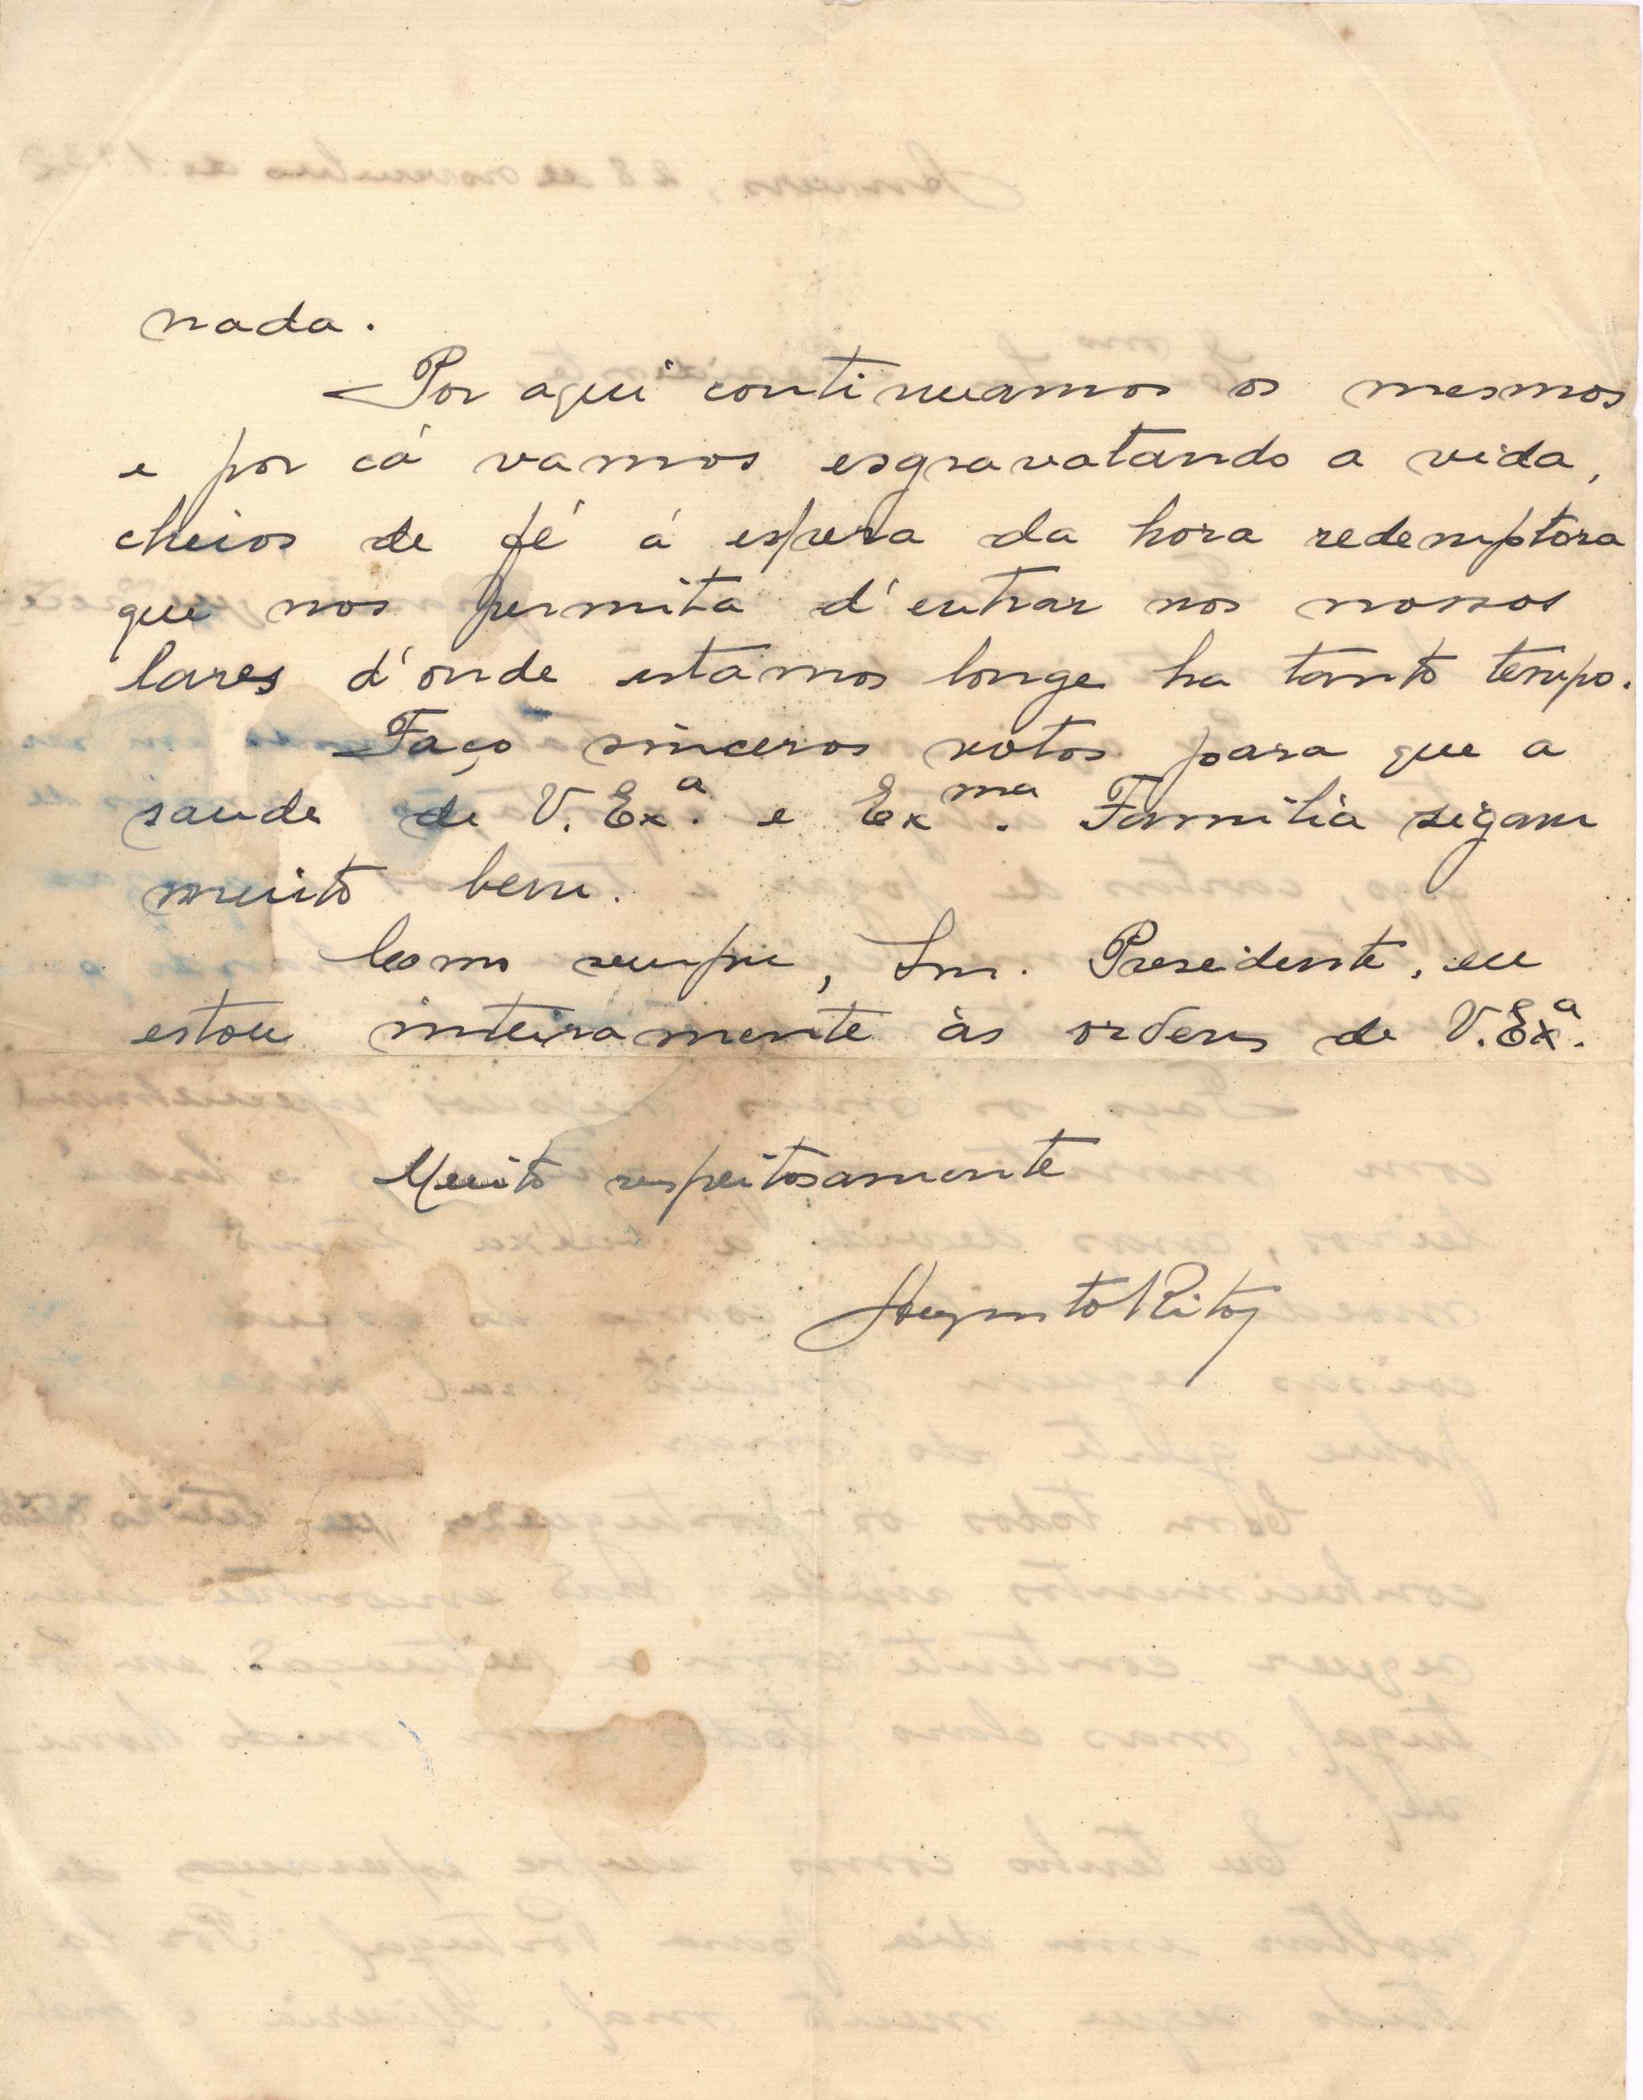 nada.
Por aqui continuamos os mesmos
e por cá vamos esgravatando a vida,
cheios de fé á espera da hora redemptora
que nos permita d'entrar nos nossos
lares d'onde estamos longe ha tanto tempo.
Faço sinceros votos para que a
saude de V. Exª. e Exma. Familia sigam
muito bem.
Como sempre, Snr. Presidente, eu
estou inteiramente às ordens de V. Exª.
Muito respeitosamente